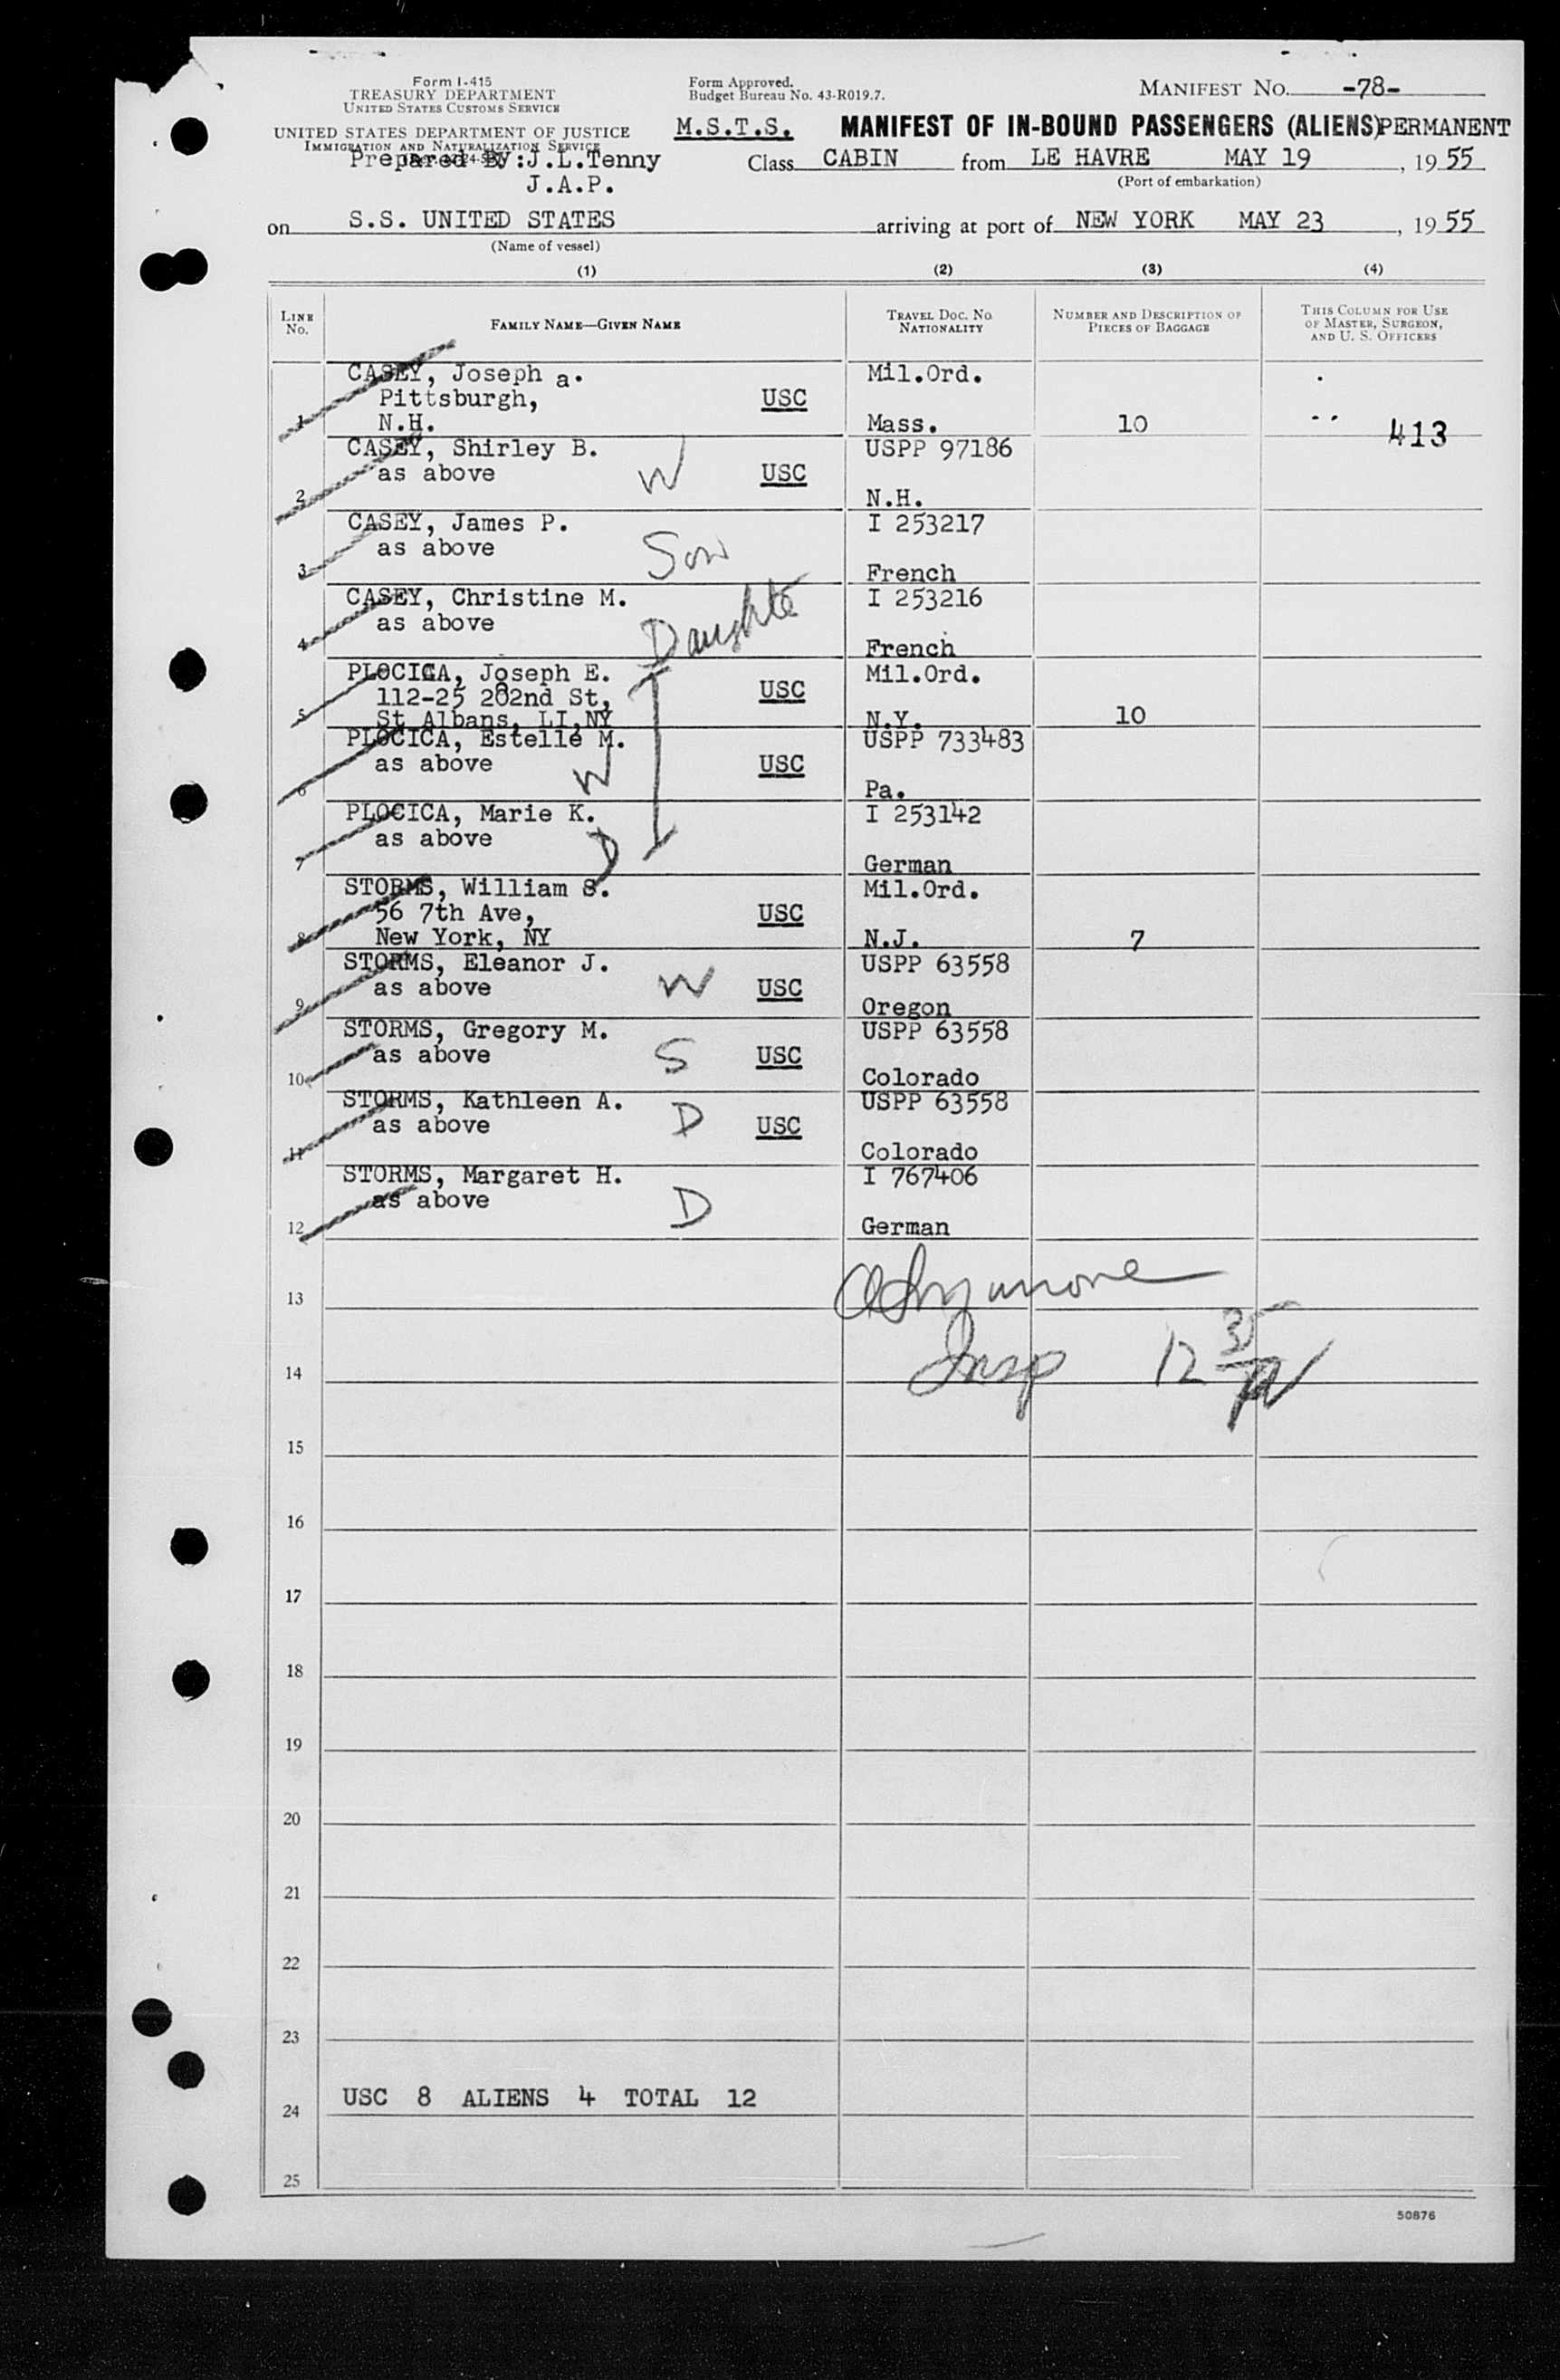 Form I-415
TREASURY DEPARTMENT
UNITED STATES CUSTOMS SERVICE
UNITED STATES DEPARTMENT OF JUSTICE
IMMIGRATION AND NATURALIZATION SERVICE
Prepared By: J.L.Tenny
J.A.P.
Form Approved.
Budget Bureau No. 43-R019.7.
MANIFEST NO. -78-
M.S.T.S. MANIFEST OF IN-BOUND PASSENGERS (ALIENS) PERMANENT
Class CABIN from LE HAVRE MAY 19, 1955
(Port of embarkation)
on S.S. UNITED STATES arriving at port of NEW YORK MAY 23, 1955
(Name of vessel)
(1) (2) (3) (4)
LINE No. FAMILY NAME—GIVEN NAME TRAVEL DOC. NO. NATIONALITY NUMBER AND DESCRIPTION OF PIECES OF BAGGAGE THIS COLUMN FOR USE OF MASTER, SURGEON, AND U. S. OFFICERS
CASEY, Joseph a. Mil.Ord.
Pittsburgh, USC
1 N.H. Mass. 10 413
CASEY, Shirley B. USPP 97186
as above W USC
2 N.H.
CASEY, James P. I 253217
as above Son
3 French
CASEY, Christine M. I 253216
as above Daughte
4 French
PLOCICA, Joseph E. Mil.Ord.
112-25 202nd St, USC
5 St Albans, LI,NY N.Y. 10
PLOCICA, Estelle M. USPP 733483
as above W USC
6 Pa.
PLOCICA, Marie K. I 253142
as above D
7 German
STORMS, William S. Mil.Ord.
56 7th Ave, USC
8 New York, NY N.J. 7
STORMS, Eleanor J. USPP 63558
as above W USC
9 Oregon
STORMS, Gregory M. USPP 63558
as above S USC
10 Colorado
STORMS, Kathleen A. USPP 63558
as above D USC
11 Colorado
STORMS, Margaret H. I 767406
as above D
12 German
13
14 Insp 12 35
15
16
17
18
19
20
21
22
23
24 USC 8 ALIENS 4 TOTAL 12
25
50876